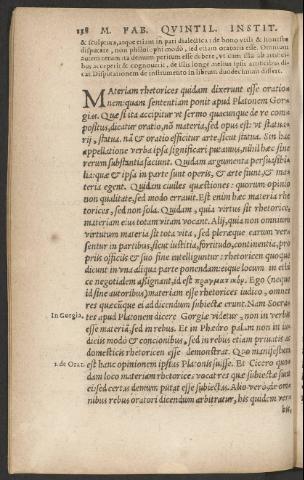 138 M. FAB. QVINTIL. INSTIT.
& sculptura, atque etiam in pari dialectica: de bono vtili & honesto
disputare, non philosophi modo, sed etiam oratoris esse. Omnium
autem rerum ita demum peritum esse debere, vt cum illa ab artifici-
bus acceperit & cognouerit, de illis longè melius ipsis artificibus di-
cat. Disputationem de instrumento in librum duodecimum differt.
MAteriam rhetorices quidam dixerunt esse oratio-
nem: quam sententiam ponit apud Platonem Gor-
gias. Quæ si ita accipitur vt sermo quacunque de re com-
positus, dicatur oratio, nõ materia, sed opus est: vt statua-
rij, statua. nã & oratio efficitur arte, sicut statua. Sin hac
appellatione verba ipsa significari putamus, nihil hæc sine
rerum substantia faciunt. Quidam argumenta persuasibi-
lia: quæ & ipsa in parte sunt operis, & arte fiunt, & ma-
teria egent. Quidam ciuiles quæstiones: quorum opinio
non qualitate, sed modo errauit. Est enim hæc materia rhe
torices, sed non sola. Quidam, quia virtus sit rhetorice,
materiam eius totam vitam vocant. Alij, quia non omnium
virtutum materia sit tota vita, sed pleræque earum ver-
sentur in partibus, sicut iustitia, fortitudo, continentia, pro
priis officiis & suo fine intelliguntur: rhetoricen quoque
dicunt in vna aliqua parte ponendam: eique locum in ethi
ce negotialem assignant, id est πραγματικόν. Ego (neque
id sine autoribus) materiam esse rhetorices iudico, omnes
res quæcũque ei ad dicendum subiectæ erunt. Nam Socra-
In Gorgia. tes apud Platonem dicere Gorgiæ videtur, non in verbis
esse materiã, sed in rebus. Et in Phedro palam non in iu-
diciis modò & concionibus, sed in rebus etiam priuatis ac
domesticis rhetoricen esse demonstrat. Quo manifestum
1. de Orat. est hanc opinionem ipsius Platonis fuisse. Et Cicero quo-
dam loco materiam rhetorices vocat res quæ subiectæ sunt
ei: sed certas demum putat esse subiectas. Alio verò de om-
nibus rebus oratori dicendum arbitratur, his quidem ver-
bis,